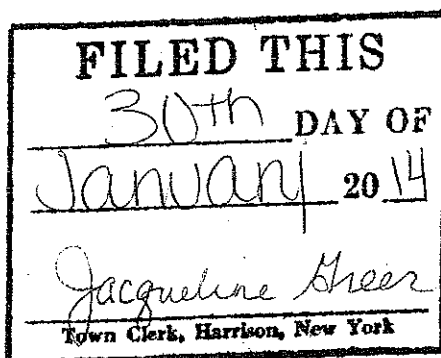 FILED THIS
30th DAY OF
January 2014
Jacqueline Greer
Town Clerk, Harrison, New York